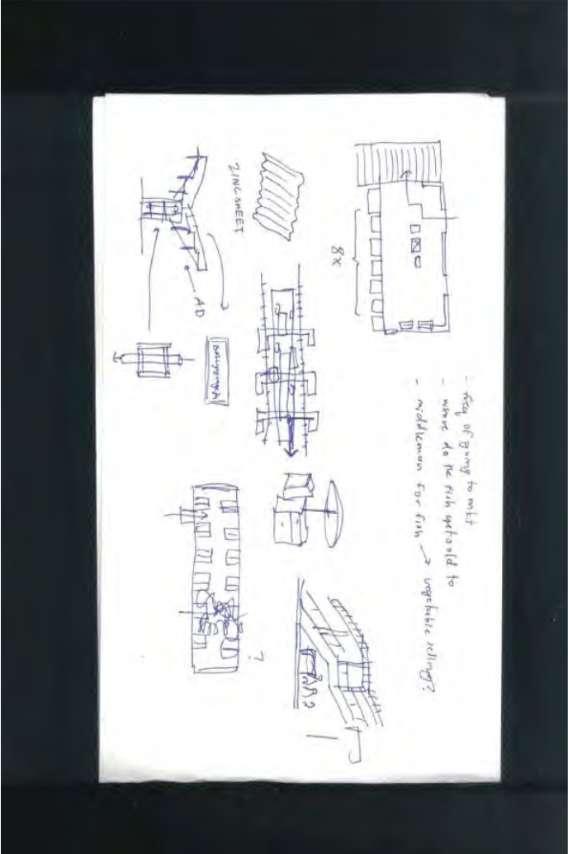 - freq of going to mkt
- where do the fish get sold to
- middleman for fish → vegetable selling?
8x
ZINC SHEET
AD
?